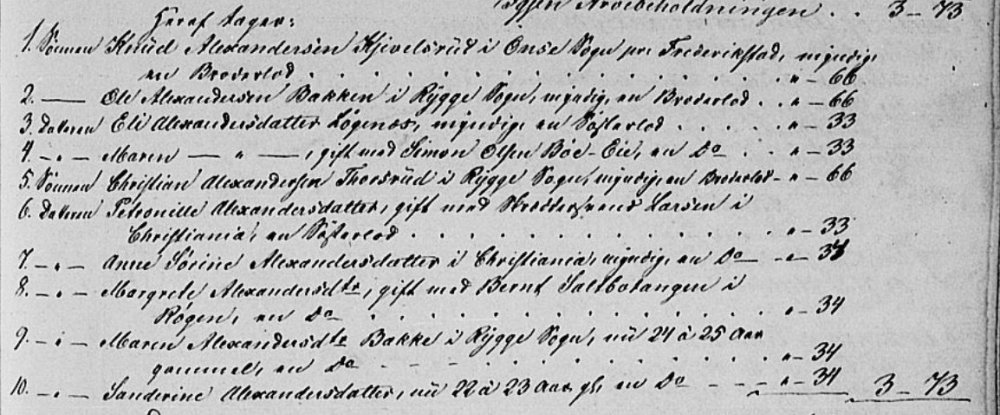 Arvebeholdningen . . 3 - 73
Heraf tager:
1. Sønnen Knud Alexandersen Kjvelsrud i Onsø Sogn pr: Frederikstad, myndig,
en Broderlod . . . . . . . . . . " - 66
2. —— Ole Alexandersen Bakken i Rygge Sogn, myndig, en Broderlod . . " - 66
3. Datteren Eli Alexandersdatter Løgenæs, myndig, en Søsterlod . . . . " - 33
4. - " - Maren —— " ——, gift med Simon Olsen Boe-Eie, en Do . . " - 33
5. Sønnen Christian Alexandersen Thorsrud i Rygge Sogn, myndig, en Broderlod - " - 66
6. Datteren Petronille Alexandersdatter, gift med Larsen i
Christiania, en Søsterlod . . . . . . . . . " - 33
7. - " - Anne Sørine Alexandersdatter i Christiania, myndig, en Do — " - 34
8. - " - Margrete Alexandersdtr, gift med Bernt Saltbotangen i
Røgen, en Do . . . . . . . . . . " - 34
9. - " - Maren Alexandersdtr Bakke i Rygge Sogn, nu 24 à 25 Aar
gammel, en Do - - . . . . . . . . " - 34
10. - " - Sanderine Alexandersdatter, nu 22 à 23 Aar gl, en Do — " - 34 3 - 73